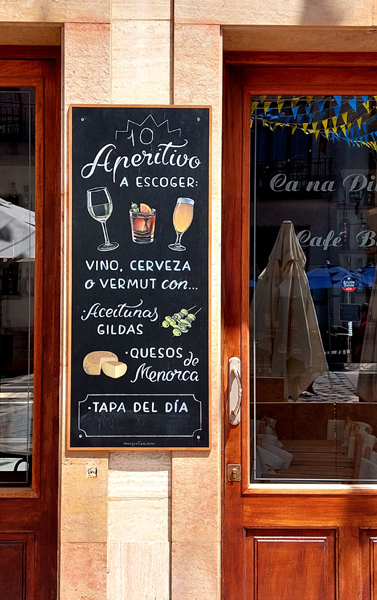 10
Aperitivo
A ESCOGER:
VINO, CERVEZA
O VERMUT con...
·Aceitunas
GILDAS
·QUESOS de
Menorca
·TAPA DEL DÍA
Ca na
Café